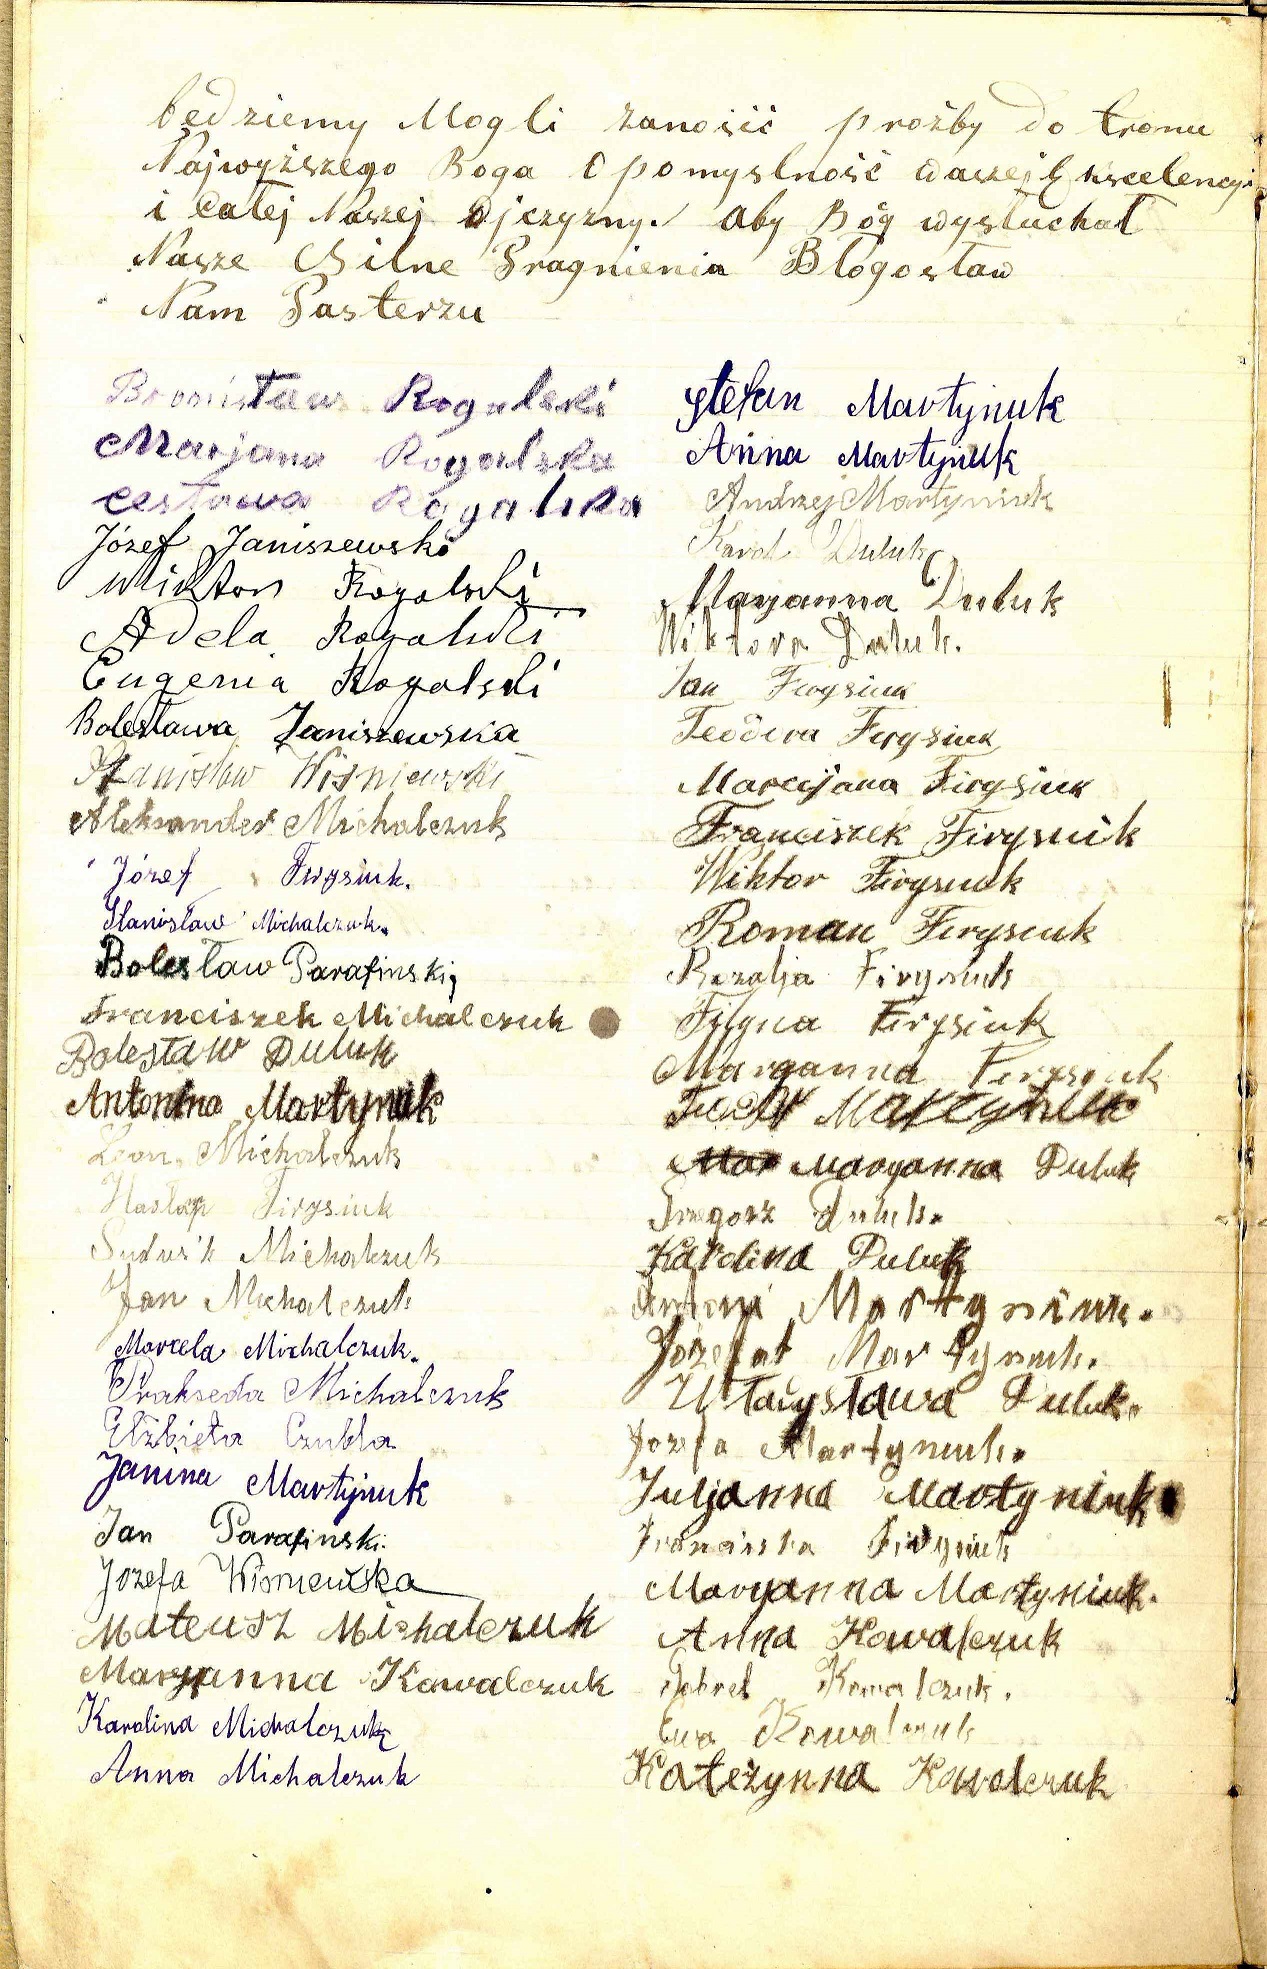 będziemy Mogli zanosić prożby do tronu
Najwyższego Boga o pomyslność waszej Exscelencyi
i całej Naszej ojczyzny. aby Bóg wysłuchał
Nasze Silne Pragnienia Błogosław
Nam Pasterzu
Bronisław Rogalski
Marjana Rogalska
cesława Rogalska
Józef Janiszewski
Wiktor Rogalski
Adela Rogalski
Eugenia Rogalski
Bolesława Janiszewska
Stanisław Wiśniewski
Aleksander Michalczuk
Józef Firysiuk.
Stanisław Michalczuk.
Bolesław Parafinski,
Franciszek Michalczuk
Bolesław Duluk
Antonina Martyniuk
Leon Michalczuk
Firysiuk
Michalczuk
Jan Michalczuk
Marcela Michalczuk.
Prakseda Michalczuk
Elżbieta Czubla
Janina Martyniuk
Jan Parafinski.
Jozefa Wisniewska
Mateusz Michalczuk
Maryanna Kowalczuk
Karolina Michalczuk
Anna Michalczuk
Stefan Martyniuk
Anna Martyniuk
Andrzej Martyniuk
Karol Duluk
Maryanna Duluk
Wiktora Duluk.
Jan Firysiuk
Teodora Firysiuk
Marcyjana Firysiuk
Franciszek Firysiuk
Wiktor Firysiuk
Roman Firysiuk
Rozalja Firysiuk
Firysiuk
Maryanna Firysiuk
Martyniuk
Maryanna Duluk
Grzegorz Duluk.
Karolina Duluk
Antoni Martyniuk.
Jozefat Martyniuk.
Władysława Duluk.
Jozefa Martyniuk.
Juljanna Martyniuk
Franciszka Firysiuk
Maryanna Martyniuk.
Anna Kowalczuk
Gabrel Kowalczuk.
Ewa Kowalczuk
Kateżynna Kowalczuk